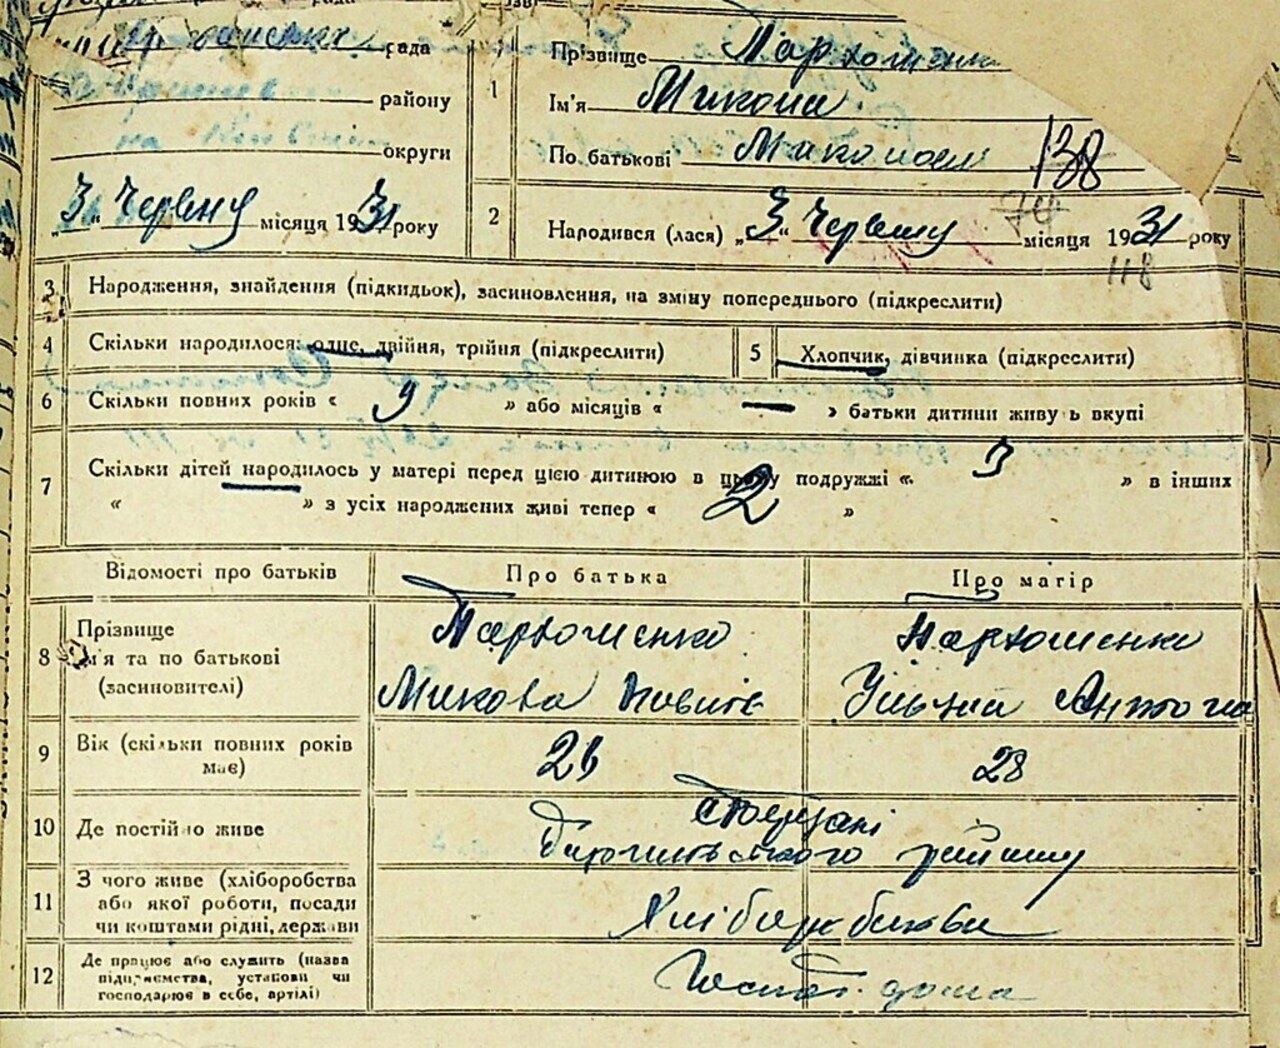 рада
Прізвище Пархоменк
району
1
Ім'я Микола
округи
По батькові
138
"3" Червня місяця 1931 року
2
Народився (лася) "3" Червня місяця 1931 року
118
3
Народження, знайдення (підкидьок), засиновлення, на зміну попереднього (підкреслити)
4
Скільки народилося: одне, двійня, трійня (підкреслити)
5
Хлопчик, дівчинка (підкреслити)
6
Скільки повних років « 9 » або місяців « — » батьки дитини живуть вкупі
7
Скільки дітей народилось у матері перед цією дитиною в цьому подружжі « 3 » в інших
« » з усіх народжених живі тепер « 2 »
Відомості про батьків
Про батька
Про матір
8
Прізвище
ім'я та по батькові
(засиновителі)
Пархоменко
Микола
Пархоменко
9
Вік (скільки повних років
має)
26
28
10
Де постійно живе
району
11
З чого живе (хліборобства
або якої роботи, посади
чи коштами рідні, держави
Хліборобство
12
Де працює або служить (назва
підприємства, установи чи
господарює в себе, артілі)
Господ. дома